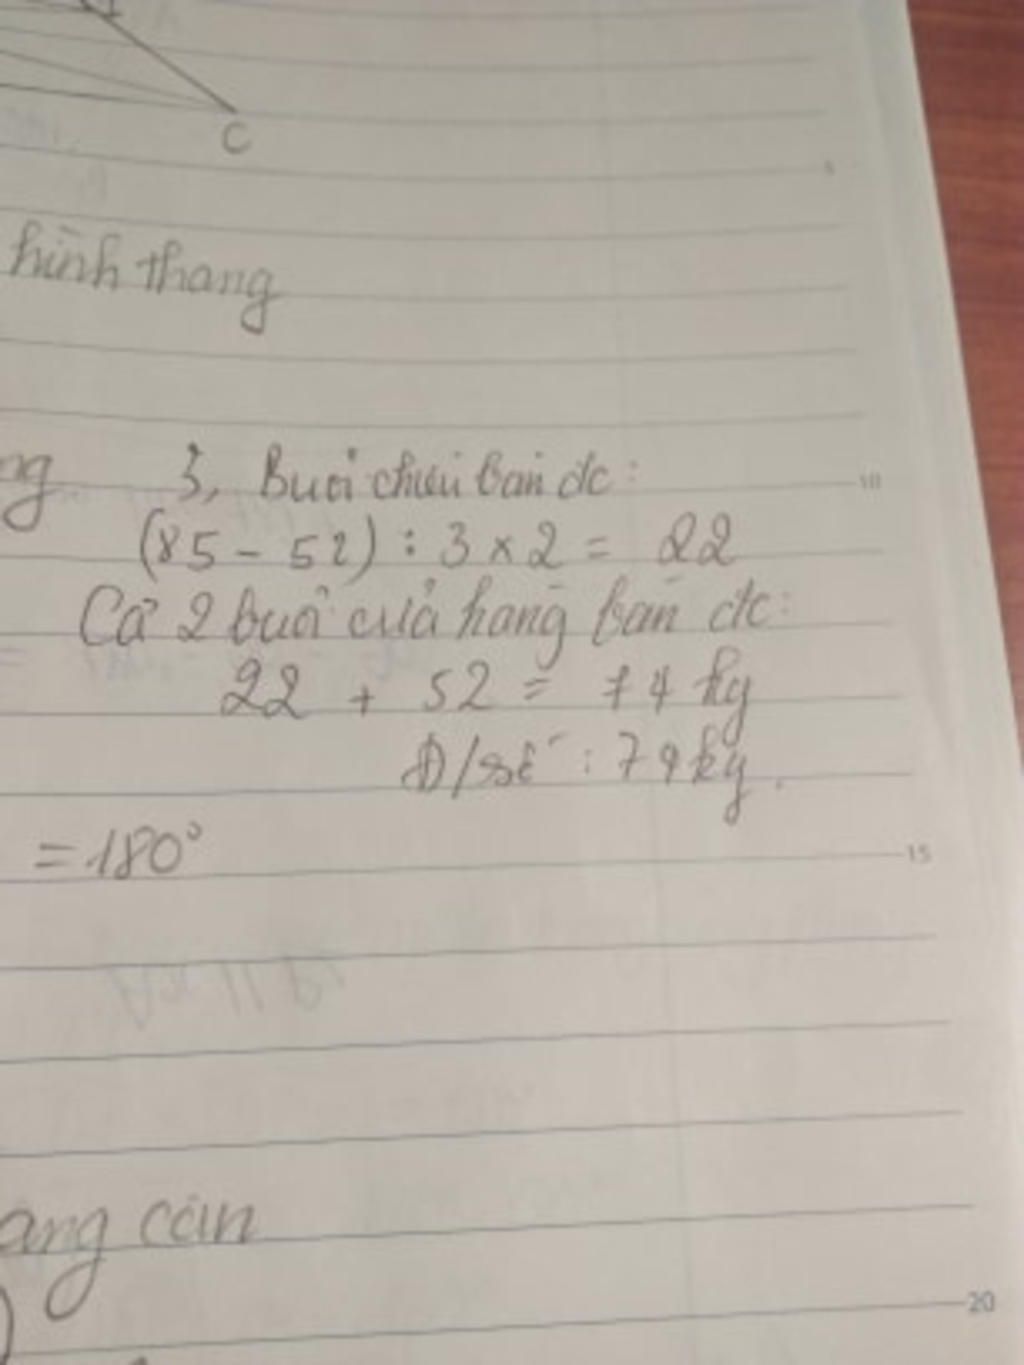 C
hình thang
ng 3, Buổi chiều bán đc:
(85 - 52) : 3 x 2 = 22
Cả 2 buổi cửa hàng bán đc:
22 + 52 = 74 kg
Đ/số : 74 kg.
= 180°
ang cân
5
10
15
20